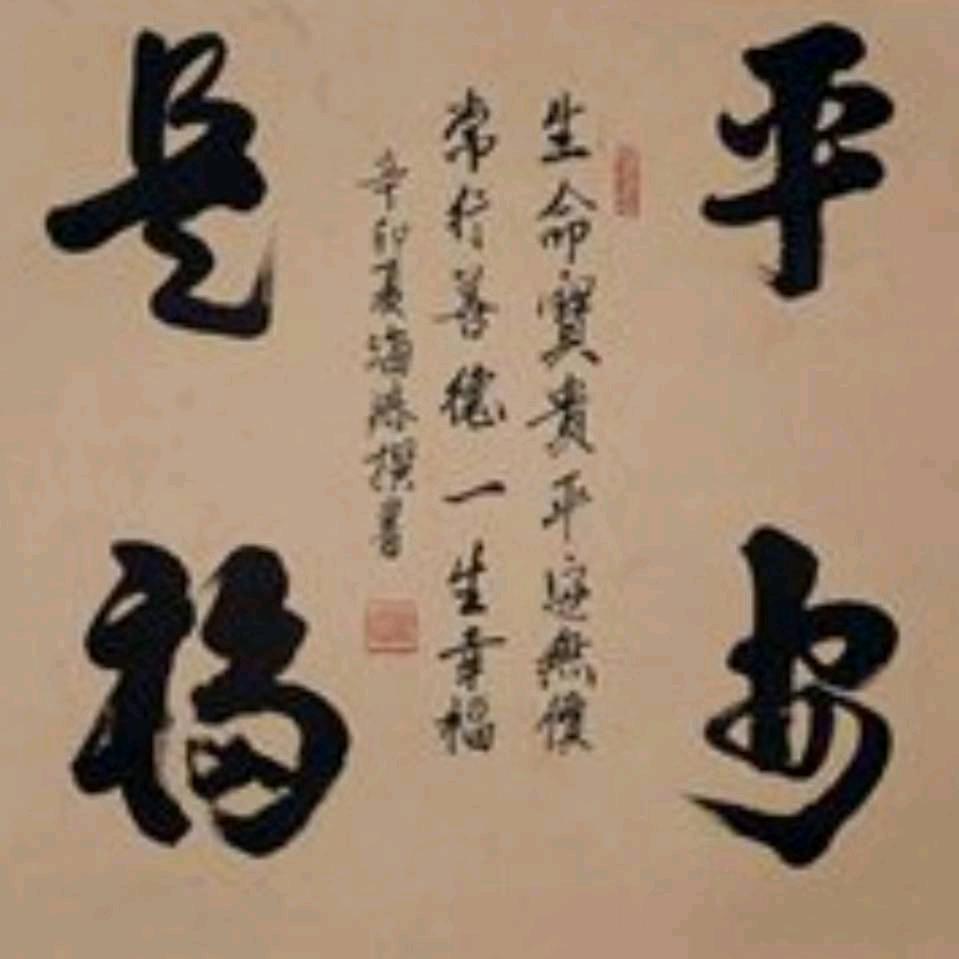 平安
生命寶貴平安無價
常行善德一生幸福
辛卯夏海撰書
是福